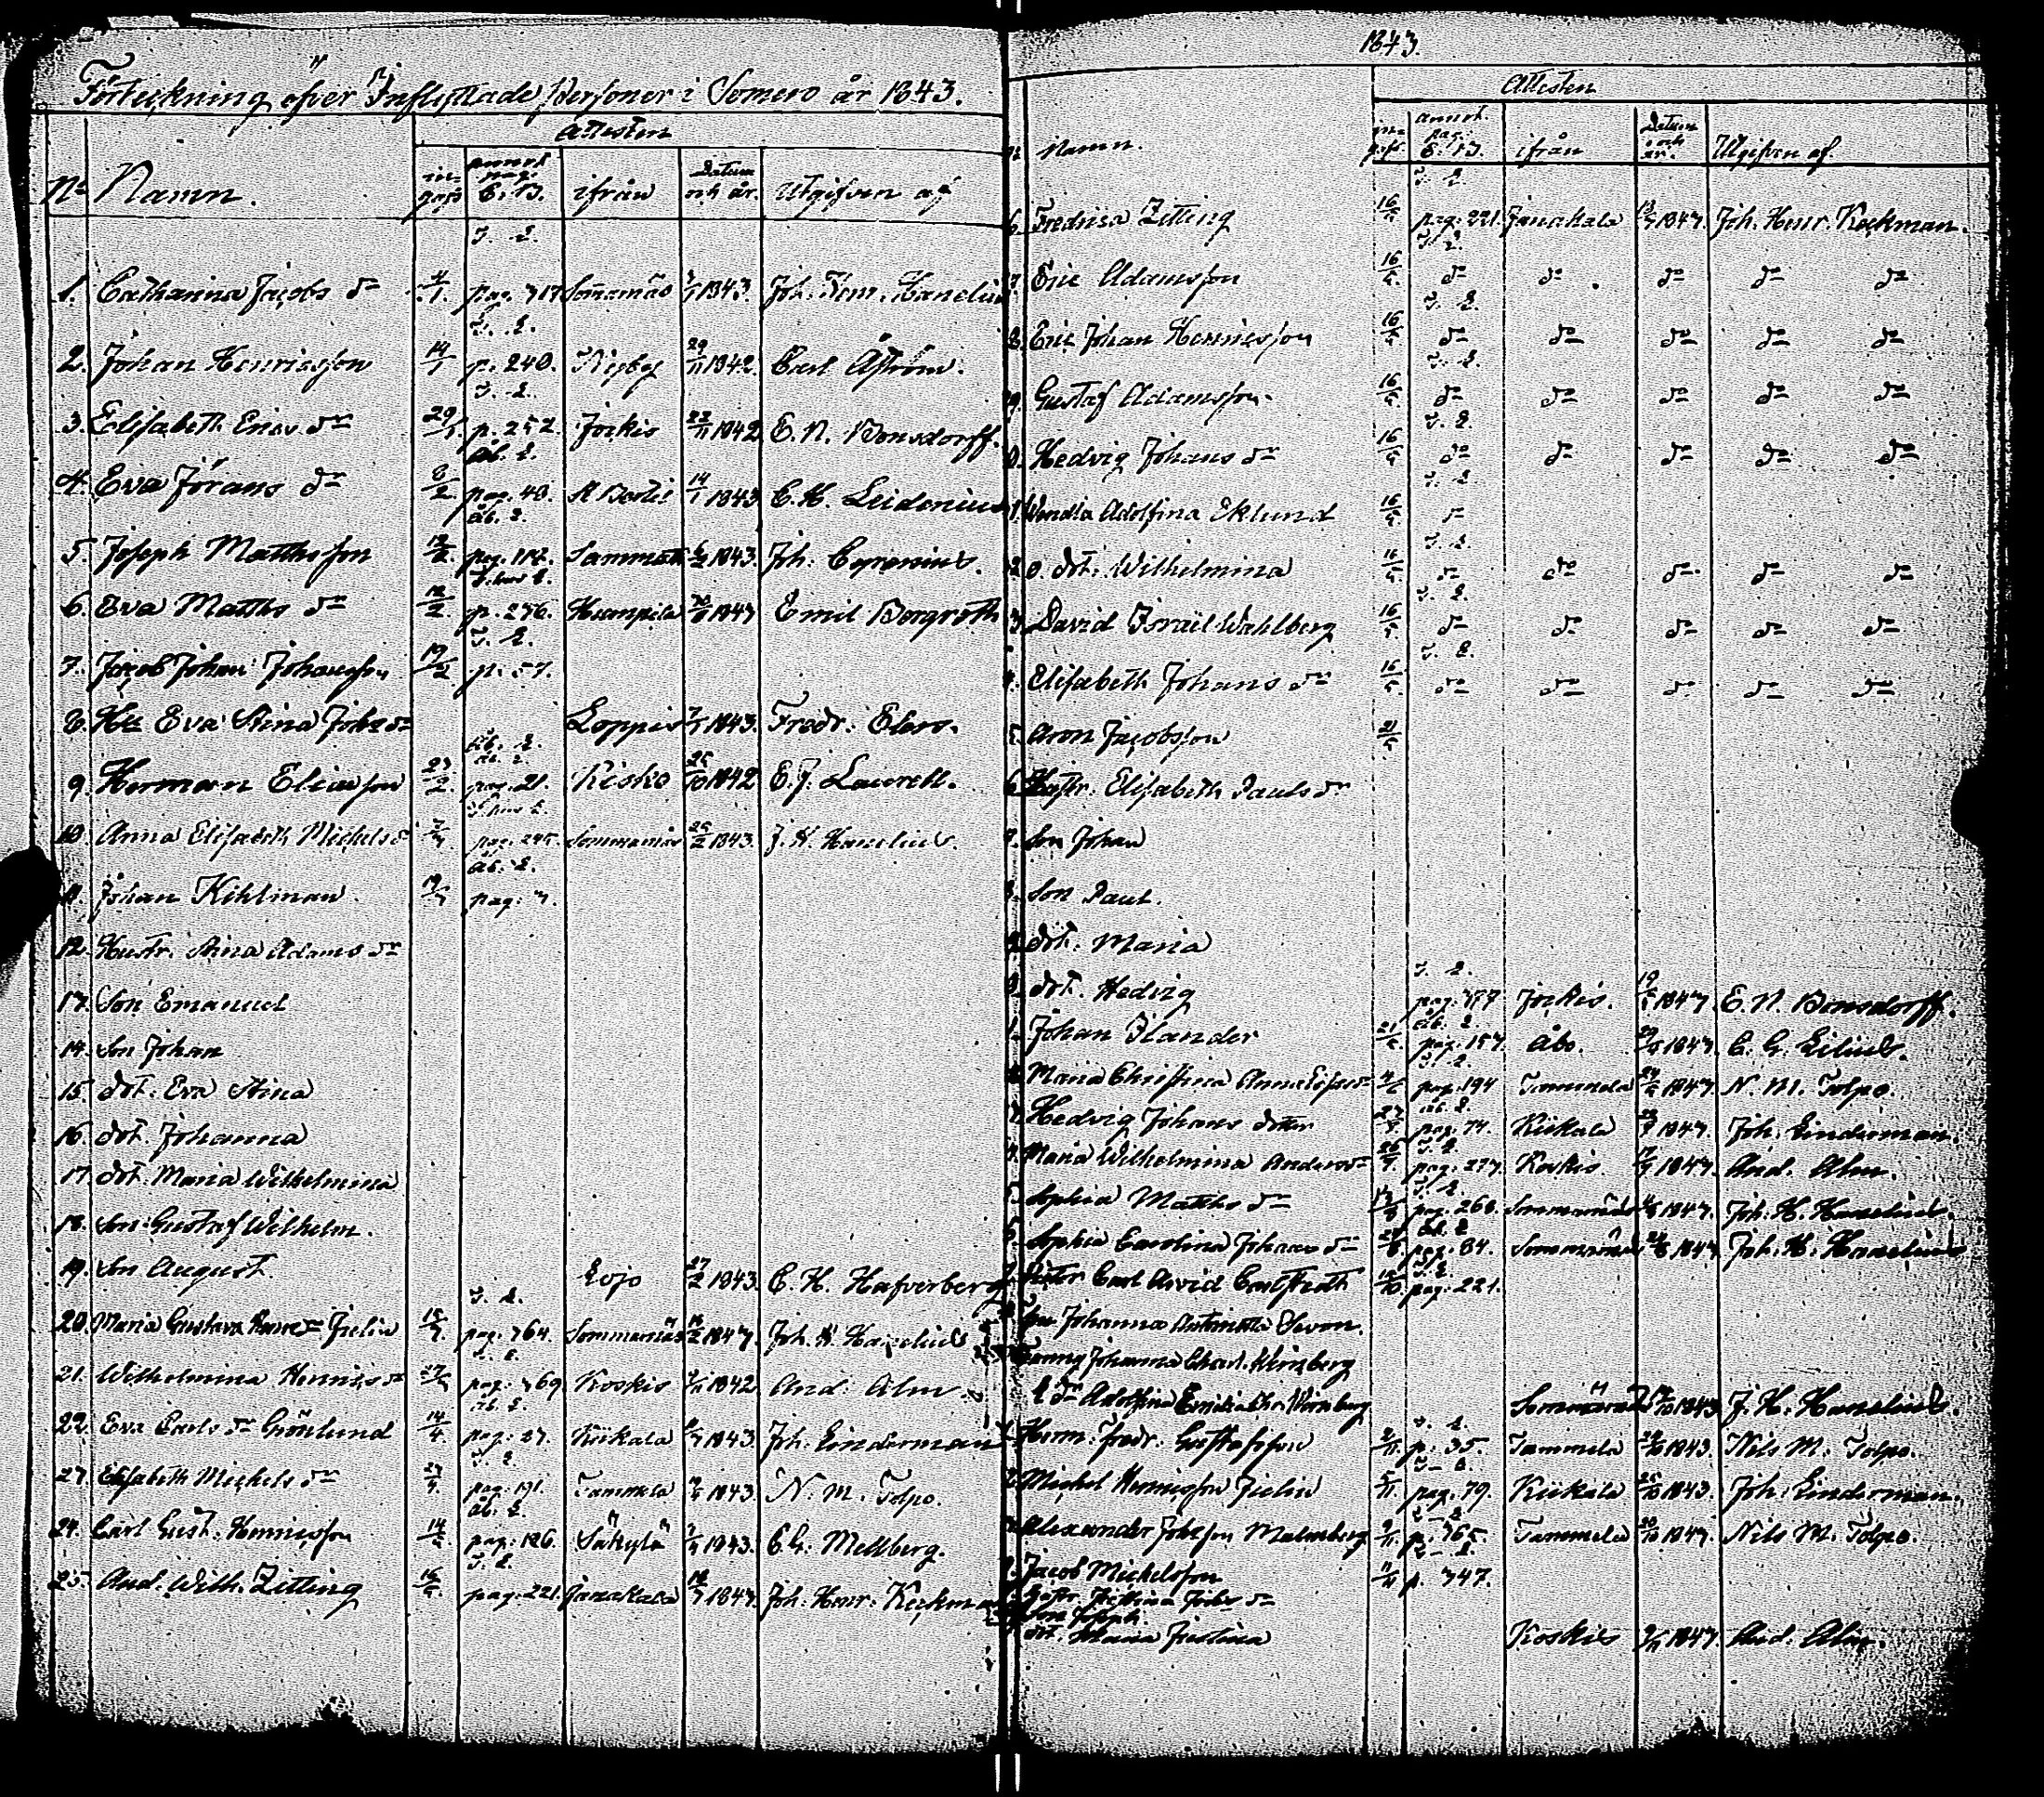 Förteckning öfver Inflyttade Personer i Somero år 1843.
Attesten
No Namn. ingafs annot. pag. C.B. ifrån Datum och år. Utgifven af
S. 2.
1. Catharina Jacobs dr 4/1. pag. 317 Sommarnäs 1843. Joh. Hanelius
S. 2.
2. Johan Henricsson 14/1 p. 240. 29/11 1842. Carl Åström.
S. 2.
3. Elisabeth Erics dr 29/1. p. 252. Jockis 22/11 1842 E. N. Bonsdorff.
Ab. 2.
4. Eva Jörans dr 8/2 pag. 40. 14/1 1843 C. H. Leidenius
Ab. 2.
5. Joseph Matthsson 12/2. pag. 112. Sammatti 1843. Joh. Cyrenius.
6. Eva Matths dr 12/2 p. 276. Humpila 1843 Emil Bergroth
S. 2.
7. Jacob Johan Johansson p. 57.
8. Hu Eva Stina Johs dr Loppis 1843. Fredr: Elers.
Ab. 2.
9. Herman Eliasson 23/2. pag. 21. Kisko 25/10 1842 E. J. Laurell.
10. Anna Elisabeth Michels dr pag. 245. Sommarnäs 25/2 1843. J. H. Hanelius.
Ab. 2.
11. Johan Kihlman. pag: 3.
12. Hustr. Stina Adams dr
13. Son Emanuel
14. Son Johan
15. dot. Eva Stina
16. dot. Johanna
17. dot. Maria Wilhelmina
18. Son Gustaf Wilhelm.
19. Son August. Lojo 27/2 1843. C. H. Hafverberg
S. 2.
20. Maria Gustava dr Julin pag: 364. Sommarnäs 1843. Joh. H. Hanelius
S. 2.
21. Wilhelmina Henrics dr pag: 369. Koskis 1842. And: Alm.
Ab. 2.
22. Eva Carls dr Grönlund 14/4. pag: 27. Kiikala 1843. Joh. Linderman
S. 2
23. Elisabeth Michels dr pag. 191. Tammela 1843. N. M. Tolpo.
Ab. 2.
24. Carl Gust: Henricsson 14/5 pag: 126. Säkylä 1843. C. G. Mellberg.
S. 2.
25. And. Wilh. Zitting 16/5. pag: 221. Janakala 1843. Joh: Henr: Keckman
1843.
Attesten
N Namn. ingafs annot. pag: C.B. ifrån Datum och år. Utgifven af.
S. 2.
6. Fredrica Zitting 16/5 pag: 221. Janakala 1843. Joh. Henr. Keckman.
S. 2.
7. Eric Adamsson 16/5. do do do do do
S. 2.
8. Eric Johan Henricsson 16/5 do do do do do
S. 2.
9. Gustaf Adamsson 16/5 do do do do do
S. 2.
0. Hedvig Johans dr 16/5 do do do do do
S. 2.
1. Wendla Adolfina Eklund 16/5 do
S. 2.
2. d. dot: Wilhelmina 16/5 do do do do do
S. 2.
3. David Israël Wahlberg 16/5 do do do do do
S. 2.
4. Elisabeth Johans dr 16/5. do do do do do
5. Aron Jacobsson 21/5
6. Hustr: Elisabeth Pauls dr
7. Son Johan
8. Son Paul.
9. dot: Maria
S. 2.
0. dot. Hedvig pag: 377 Jockis. 1843. E. N. Bonsdorff.
Ab. 2
1. Johan Ilander 21/5. pag: 157. Åbo. 1843. C. G. Lilius.
S. 2.
2. Maria Christina pag. 194 Tammela 1843. N. M. Tolpo.
Ab. 2.
3. Hedvig Johans dotter pag. 74. Kiikala 1843. Joh. Linderman.
S. 2
4. Maria Wilhelmina Anders dr pag: 277. Koskis. 1843. And. Alm.
S. 2
5. Sophia Matths dr pag. 268. Sommarnäs 1843. Joh: H. Hanelius.
Ab. 2
6. Sophia Carolina Johans dr pag: 84. Sommarnäs 1843. Joh. H. Hanelius
S. 2
7. Carl Arvid pag: 221.
8. Fru Johanna Antonetta Sevon.
Fanny Johanna Charl. Wirzberg
Adolfina Emilia Wirzberg Sommarnäs 1843 J. H. Hanelius.
S. 2.
Herm: Fredr: Gustafsson 2/11 p. 35. Tammela 1843. Nils M. Tolpo.
S. 2.
Michel Henricsson Julin 5/11. pag. 79. Kiikala 25/10 1843. Joh: Linderman.
S. 2
Alexander Johsson Malmberg 9/11. p. 365 Tammela 1843. Nils M. Tolpo.
S. 2.
Jacob Michelsson p. 347.
Hustr. Justina Johs dr
Son Joseph
dot. Maria Justina Koskis 1843. And. Alm.